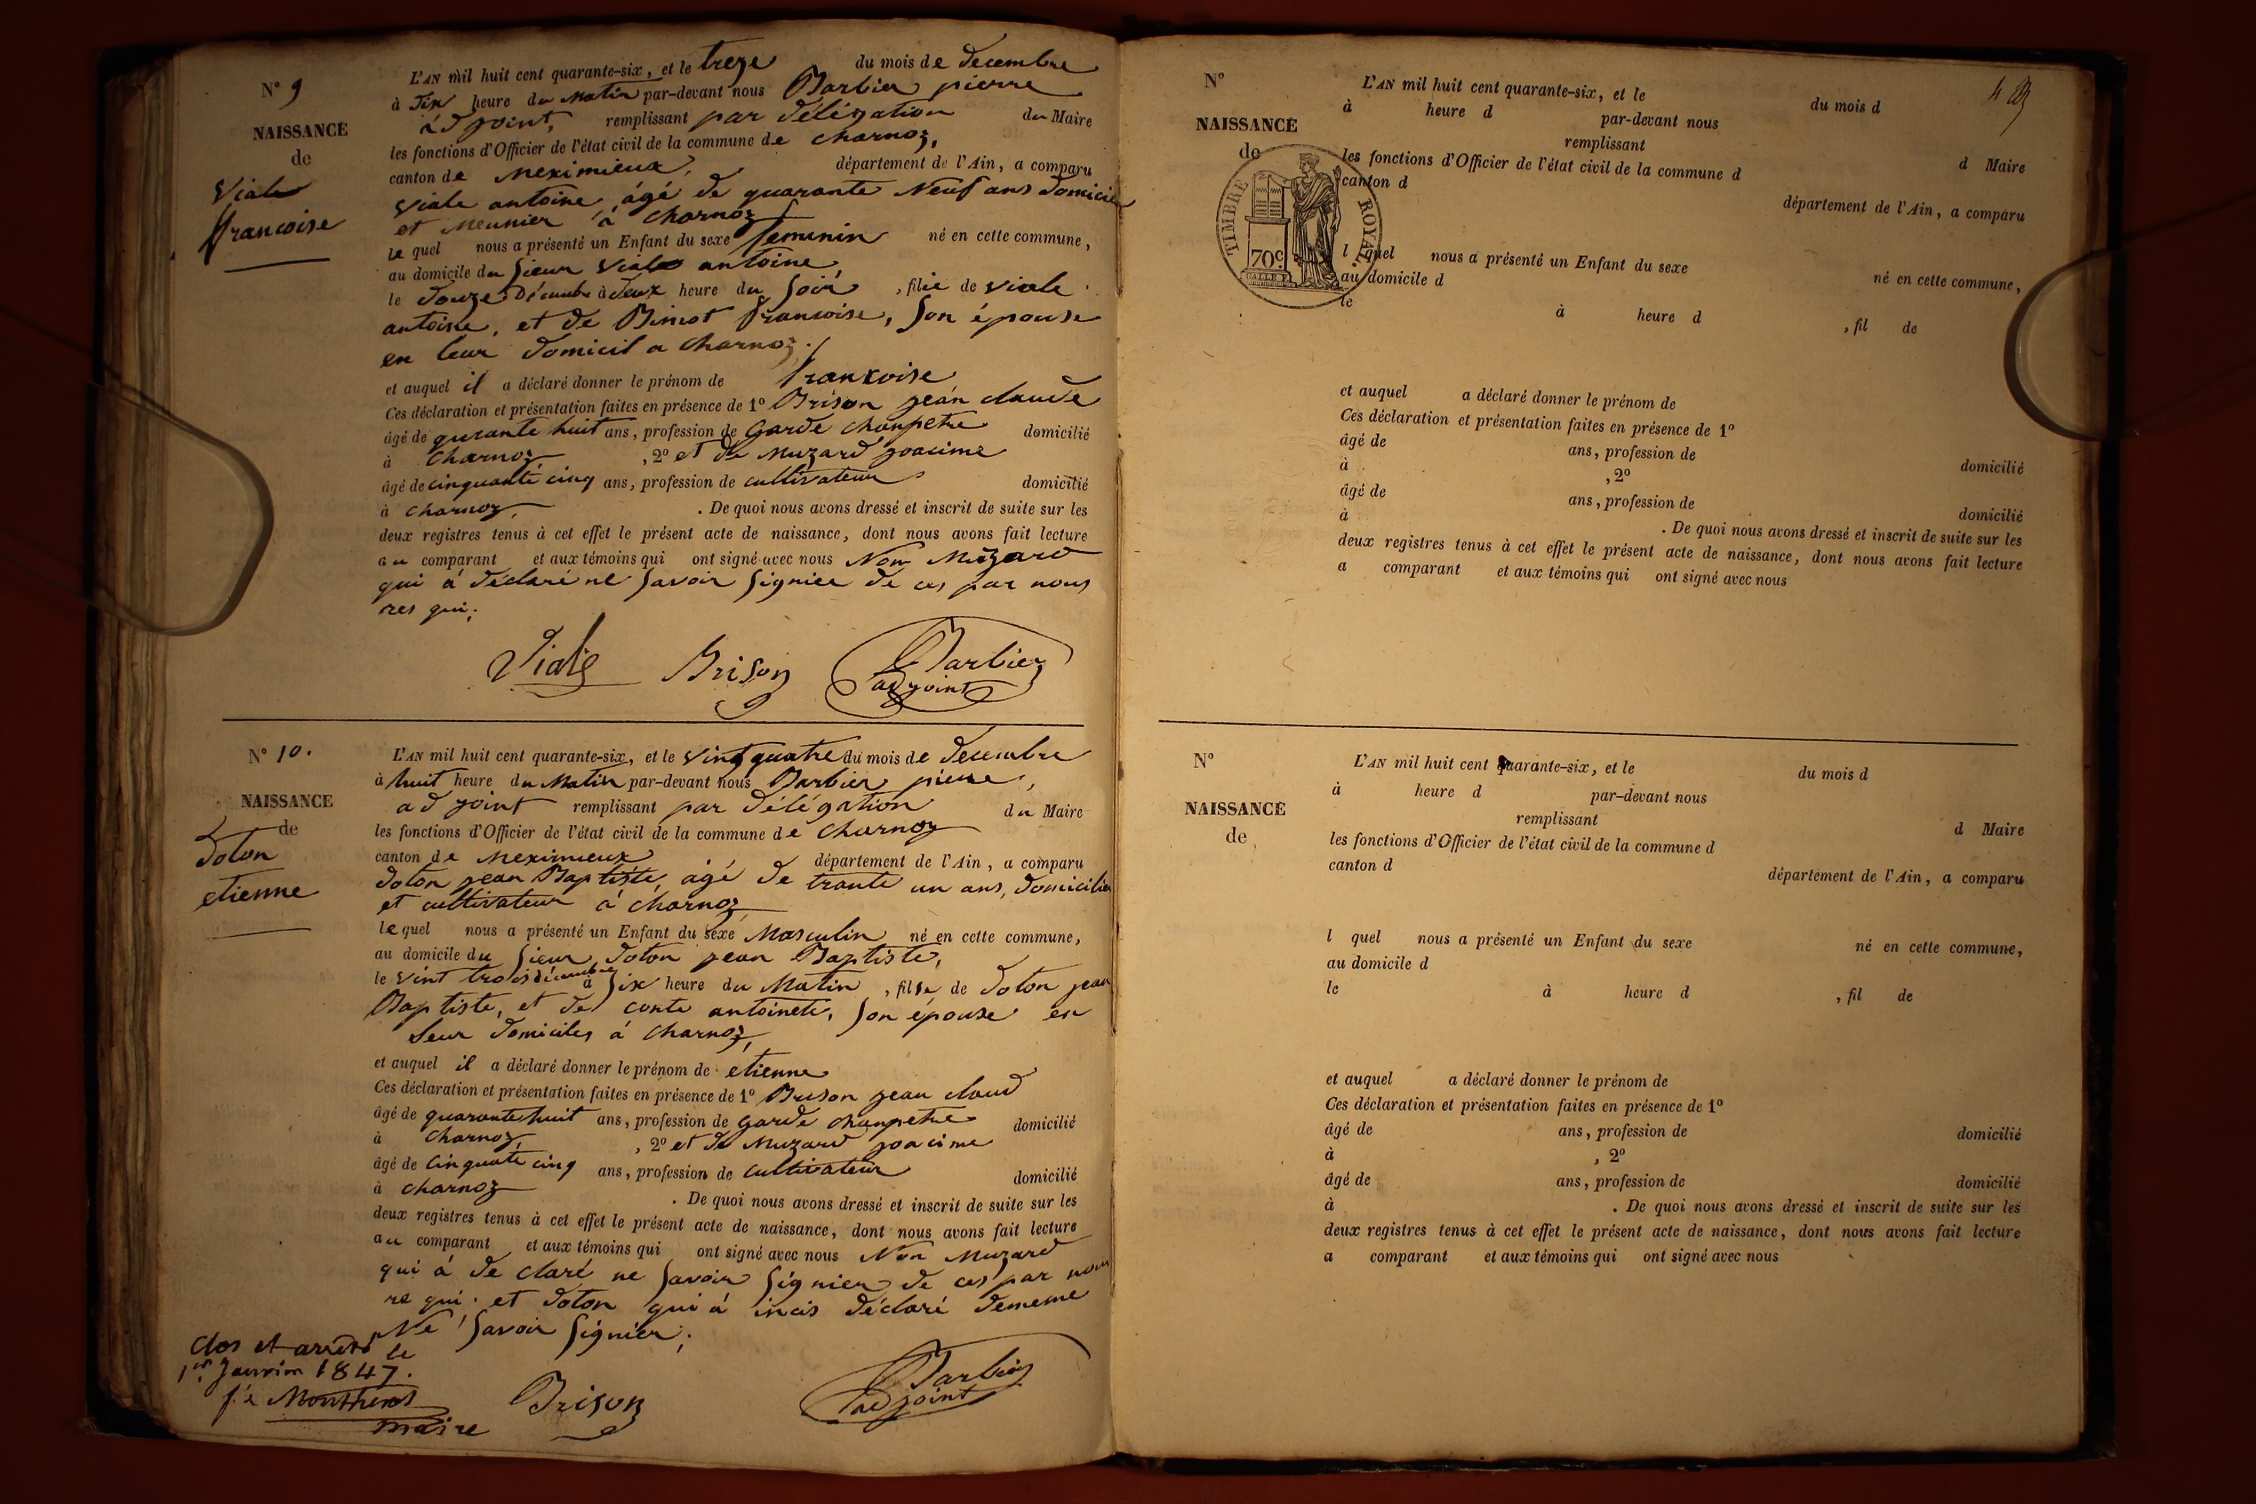 N° 9
NAISSANCE
de
Viale
francoise
L'AN mil huit cent quarante-six, et le treze du mois de decembre
à dix heure du Matin par-devant nous Barbier pierre
adjoint, remplissant par délégation du Maire
les fonctions d'Officier de l'état civil de la commune de charnoz,
canton de Meximieux, département de l'Ain, a comparu
Viale antoine, âgé de quarante Neuf ans domicilier
et Meunier à charnoz
le quel nous a présenté un Enfant du sexe feminin né en cette commune,
au domicile du sieur Viale antoine,
le douze Décembre à deux heure du soir, fille de viale
antoine, et de françoise, son épouse
en leur domicil a charnoz.
et auquel il a déclaré donner le prénom de francoise
Ces déclaration et présentation faites en présence de 1° Brison jean claude
âgé de qurante huit ans, profession de Garde chanpetre domicilié
à charnoz, 2° et de Muzard joacime
âgé de cinquante cinq ans, profession de cultivateur domicilié
à charnoz, . De quoi nous avons dressé et inscrit de suite sur les
deux registres tenus à cet effet le présent acte de naissance, dont nous avons fait lecture
au comparant et aux témoins qui ont signé avec nous Non Muzard
qui à déclaré ne savoir signier de ces par nous
res qui;
Viale Brison Barbier
adjoint
N° 10.
NAISSANCE
de
doton
etienne
L'AN mil huit cent quarante-six, et le vingt quatre du mois de decembre
à huit heure du Matin par-devant nous Barbier pierre,
adjoint remplissant par délégation du Maire
les fonctions d'Officier de l'état civil de la commune de charnoz
canton de Meximieux département de l'Ain, a comparu
doton jean Baptiste, âgé de trante un ans, domicilier
et cultivateur à charnoz,
le quel nous a présenté un Enfant du sexe Masculin né en cette commune,
au domicile du sieur doton jean Baptiste,
le vint trois décembre à six heure du Matin, fils de doton jean
Baptiste, et de conte antoinete, son épouse en
leur domiciles à charnoz,
et auquel il a déclaré donner le prénom de etienne
Ces déclaration et présentation faites en présence de 1° Brison jean claud
âgé de quarante huit ans, profession de garde chanpetre domicilié
à charnoz, , 2° et de Muzard joacime
âgé de cinquante cinq ans, profession de cultivateur domicilié
à charnoz . De quoi nous avons dressé et inscrit de suite sur les
deux registres tenus à cet effet le présent acte de naissance, dont nous avons fait lecture
au comparant et aux témoins qui ont signé avec nous Non Muzard
qui à de claré ne savoir signier de ces par nous
re qui. et doton qui à déclaré dememe
Ne savoir signier;
clos et arrêté le
1er Janvier 1847.
maire
Brison
Barbier
adjoint
N°
NAISSANCE
de
TIMBRE ROYAL
70c.
L'AN mil huit cent quarante-six, et le du mois d
à heure d par-devant nous
remplissant d Maire
les fonctions d'Officier de l'état civil de la commune d
canton d département de l'Ain, a comparu
l quel nous a présenté un Enfant du sexe né en cette commune,
au domicile d
le à heure d , fil de
et auquel a déclaré donner le prénom de
Ces déclaration et présentation faites en présence de 1°
âgé de ans, profession de domicilié
à , 2°
âgé de ans, profession de domicilié
à . De quoi nous avons dressé et inscrit de suite sur les
deux registres tenus à cet effet le présent acte de naissance, dont nous avons fait lecture
a comparant et aux témoins qui ont signé avec nous
N°
NAISSANCE
de
L'AN mil huit cent quarante-six, et le du mois d
à heure d par-devant nous
remplissant d Maire
les fonctions d'Officier de l'état civil de la commune d
canton d département de l'Ain, a comparu
l quel nous a présenté un Enfant du sexe né en cette commune,
au domicile d
le à heure d , fil de
et auquel a déclaré donner le prénom de
Ces déclaration et présentation faites en présence de 1°
âgé de ans, profession de domicilié
à , 2°
âgé de ans, profession de domicilié
à . De quoi nous avons dressé et inscrit de suite sur les
deux registres tenus à cet effet le présent acte de naissance, dont nous avons fait lecture
a comparant et aux témoins qui ont signé avec nous